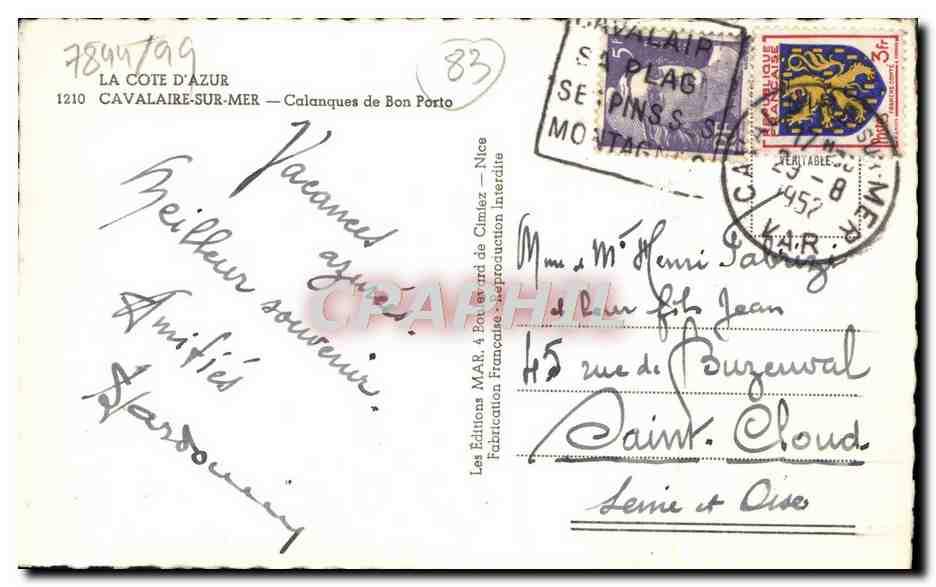 7844/99
83
LA COTE D'AZUR
1210 CAVALAIRE-SUR-MER — Calanques de Bon Porto
CAVALAIR
SA PLAG
SES PINS S S
MONTAGN
5F
RÉPUBLIQUE FRANÇAISE
3fr
FRANCHE-COMTÉ
POSTES
VÉRITABLE
CAVALAIRE-SUR-MER
17H
29-8
1952
VAR
Vacances
azurées.
Meilleur souvenir.
Amitiés
Les Éditions MAR, 4 Boulevard de Cimiez — Nice
Fabrication Française - Reproduction Interdite
CPARHIL
Mme & Mr Henri Fabrizi
& leur fils Jean
45 rue de Buzenval
Saint-Cloud
Seine et Oise